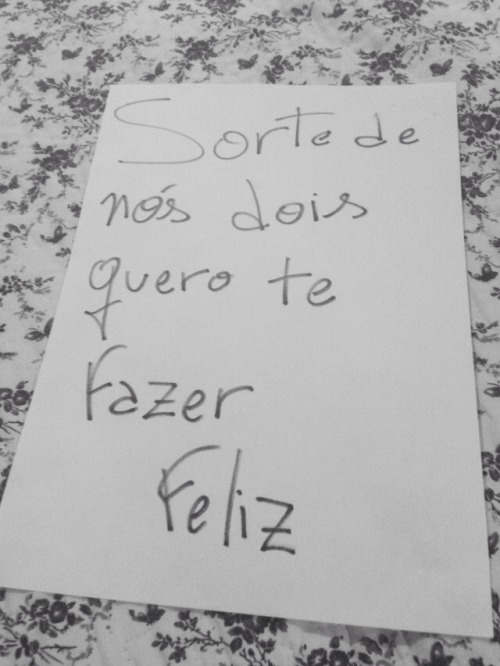 Sorte de
nós dois
quero te
Fazer
Feliz